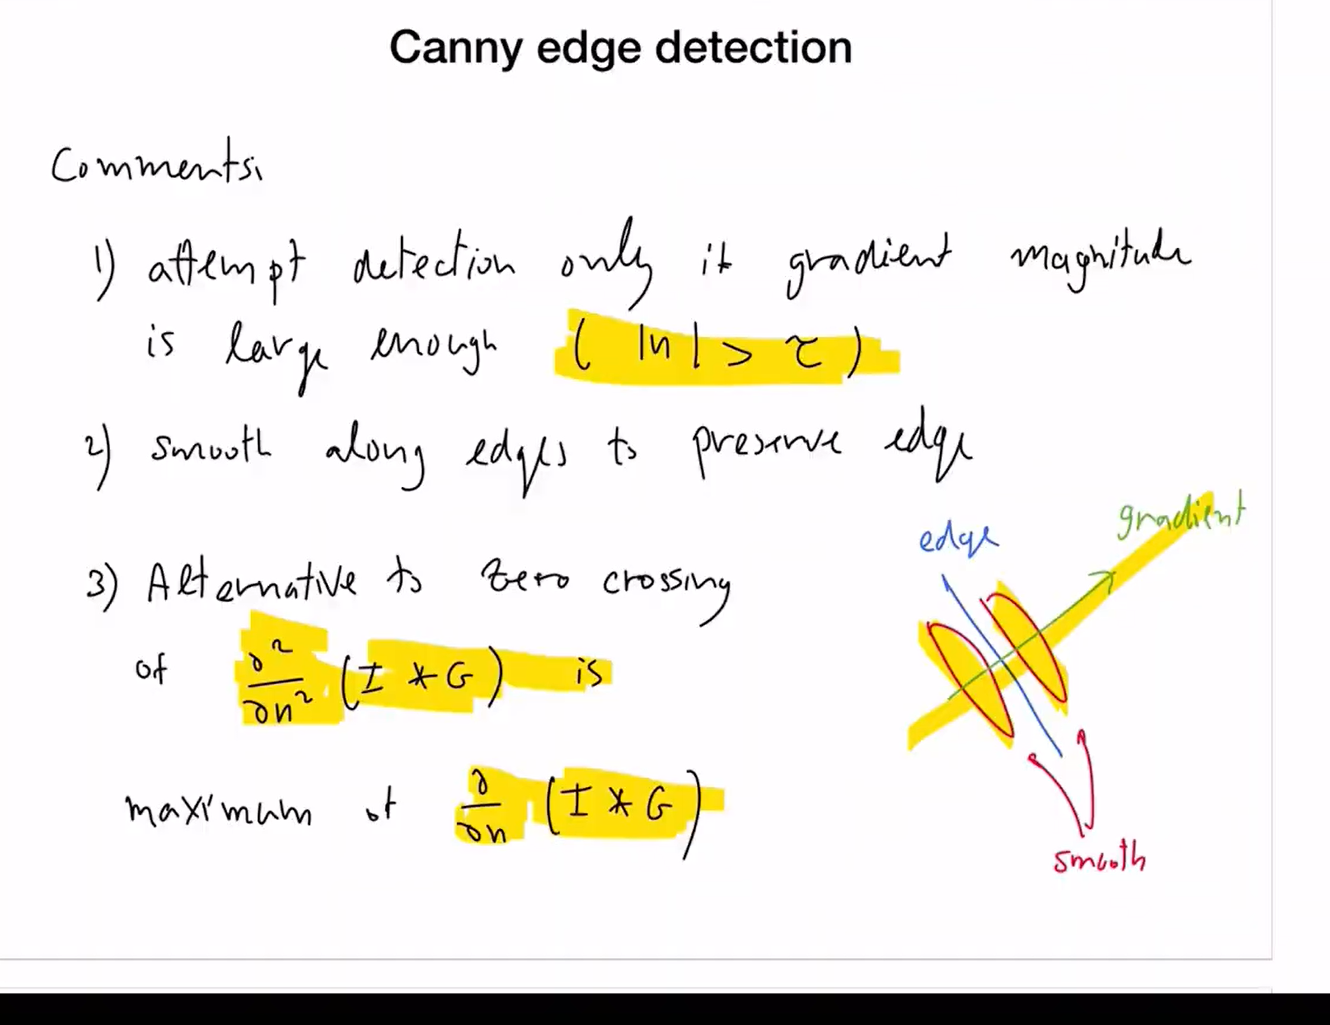 Canny edge detection
Comments:
1) attempt detection only if gradient magnitude
is large enough ( |n| > τ )
2) smooth along edges to preserve edge
3) Alternative to zero crossing
of ∂²/∂n² (I * G) is
maximum of ∂/∂n (I * G)
gradient
edge
smooth